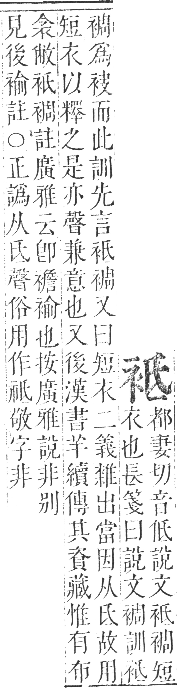 袛
都妻切音低說文袛裯短
衣也長箋曰說文裯訓袛
裯爲被而此訓先言袛裯又曰短衣二義雜出當因从氐故用
短衣以釋之是亦聲兼意也又後漢書羊續傳其資藏惟有布
衾敝袛裯註廣雅云卽襜褕也按廣雅說非别
見後褕註○正譌从氐聲俗用作祗敬字非